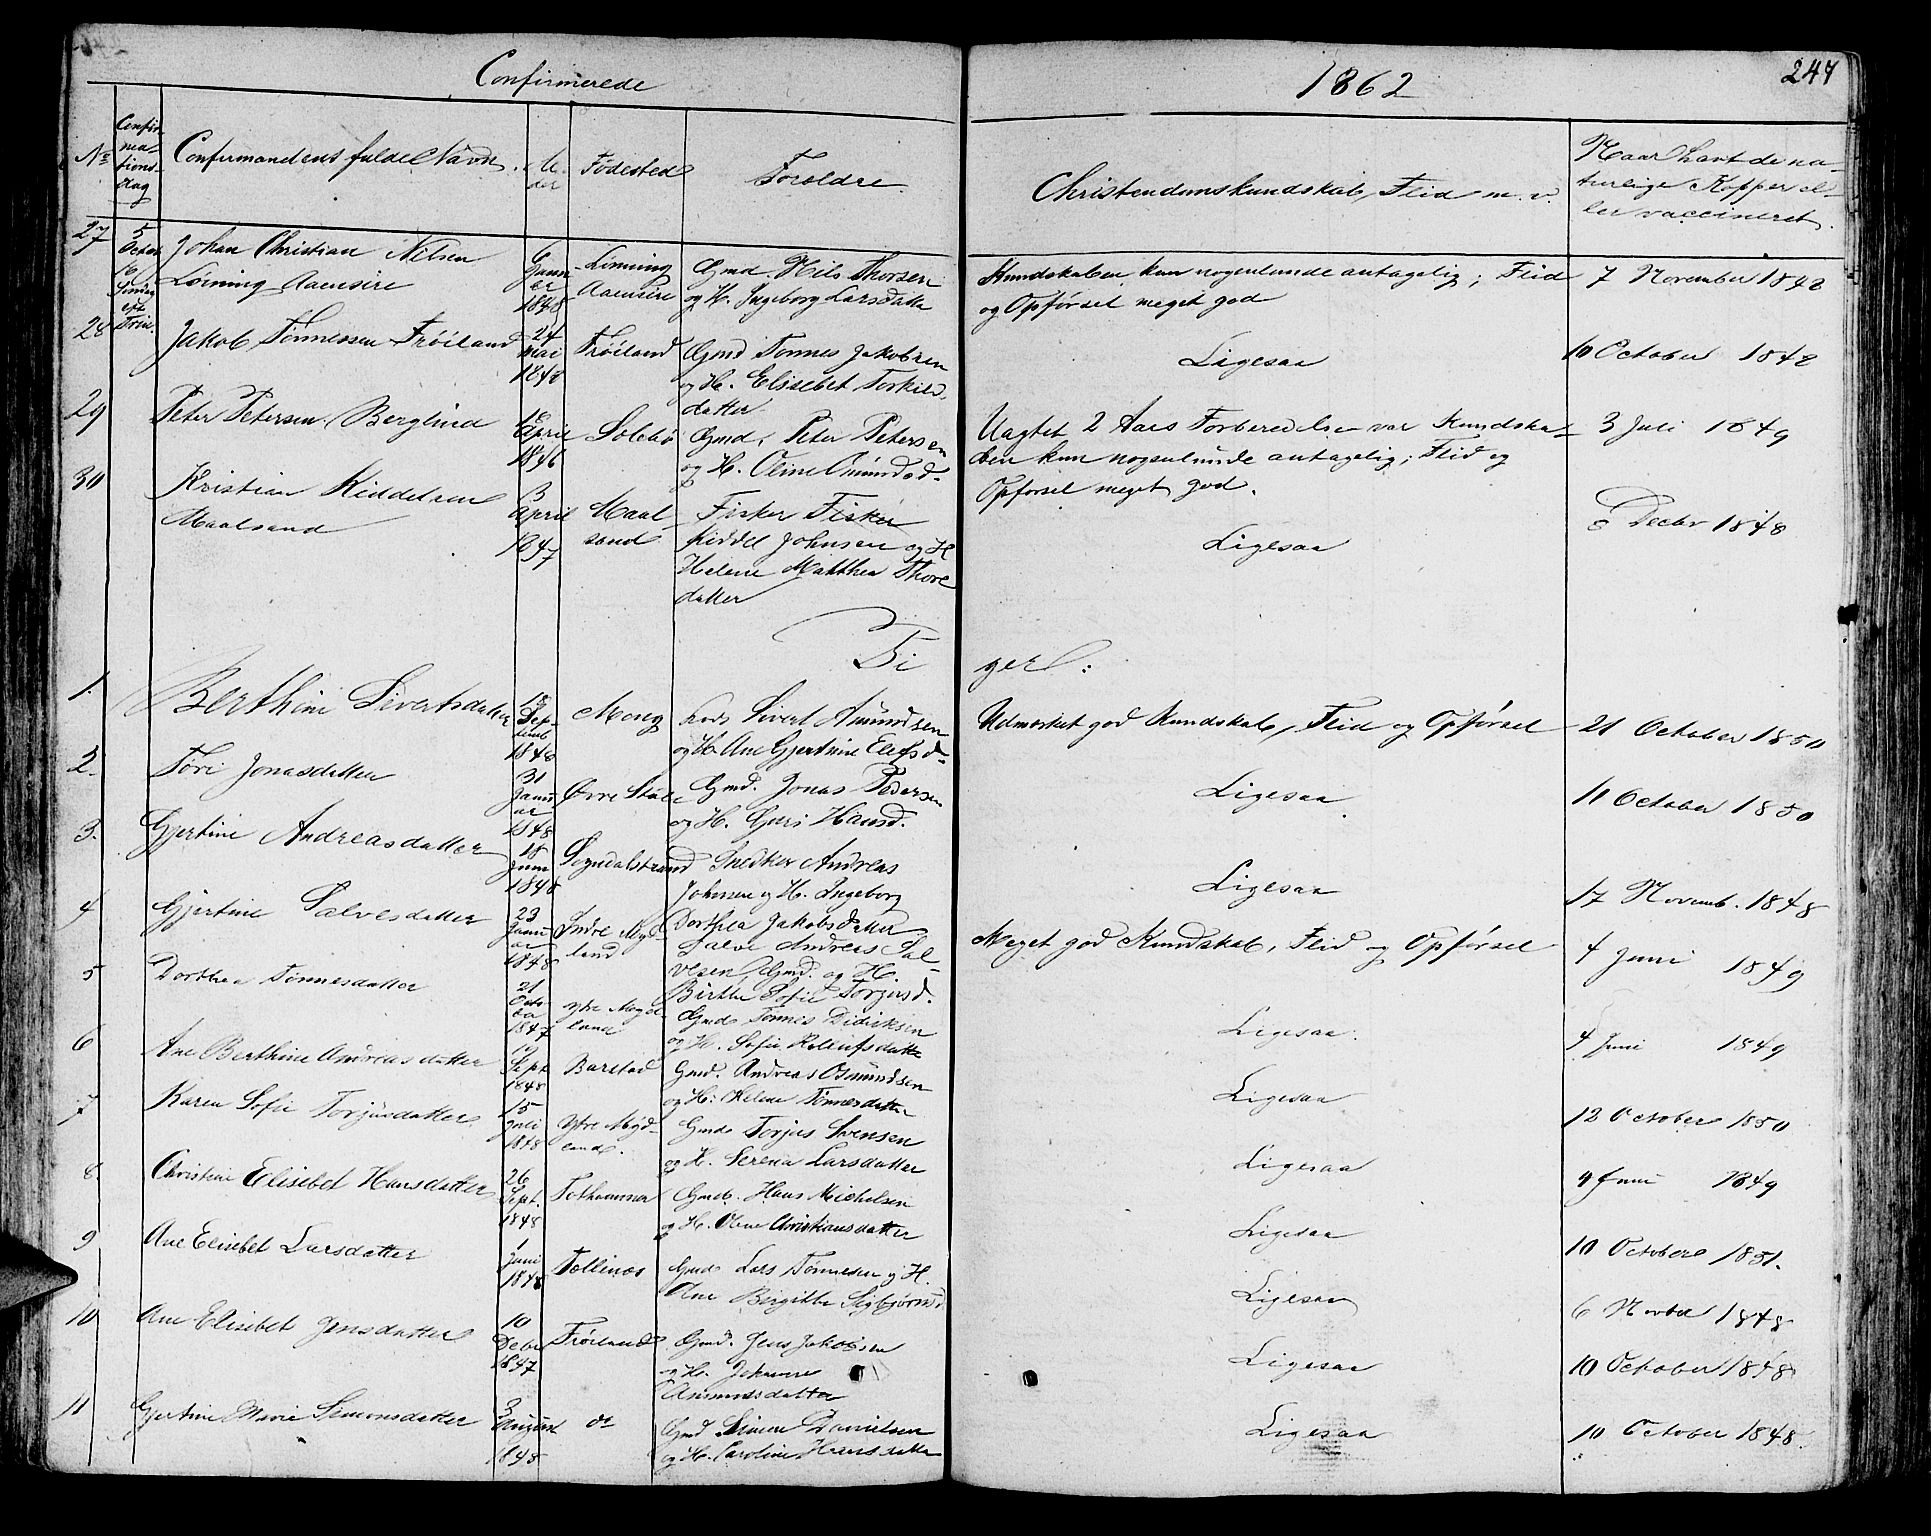 Confirmerede
1862
247
No
Confirmationsdag
Confirmandens fulde Navn
Alder
Fødested
Foreldre
Christendomskundskab, Flid m. v.
Naar havt de naturlige Kopper eller vaccineret.
27
5 Octob 16 Søndag eft Trin.
Johan Christian Nilsen
Løining Aaensire
Januar 1848
Løining Aaensire
Gmd. Nils Thorsen
og H. Ingeborg Larsdatter
Kundskaben kun nogenlunde antagelig; Flid
og Opførsel meget god
7 November 1848
28
Jakob Tønnessen Frøiland
24 Mai 1848
Frøiland
Gmd Tønnes Jakobsen
og H. Elisebet Torkilds
datter
Ligesaa
10 October 1848
29
Peter Petersen Berglund
18 April 1846
Gmd. Peter Petersen
og H. Oline Omundsd.
Uagtet 2 Aars Forberedelse var Kundska-
ben kun nogenlunde antagelig; Flid og
Opførsel meget god.
3 Juli 1849
30
Kristian Kiddelsen
Maalsand
3 April 1847
Maal
sand
Fisker Fisker
Kiddel Johnsen og H
Helene Matthea Thore
datter
Ligesaa
Decbr 1848
Pi
ger:
1.
Berthine Sivertsdatter
Septemb 1848
Mong
Lods Sivert Amundsen
og H. Ane Gjertine Elefsd.
Udmærket god Kundskab, Flid og Opførsel
21 October 1850
2.
Tøri Jonasdatter
31 Januar 1848
Øvre
Gmd. Jonas Pedersen
og H. Guri Hansd.
Ligesaa
11 October 1850
3.
Gjertine Andreasdatter
18 Juni 1848
Sogndalstrand
Snedker Andreas
Johnsen og H. Ingeborg
Dorthea Jakobsdatter
Ligesaa
17 Novemb. 1848
4
Gjertine Salvesdatter
23 Januar 1848
Indre Myd-
land
Salve Andreas Sal-
vesen, Gmd. og H.
Birthe Sofie Torjusd.
Meget god Kundskab, Flid og Opførsel
4 Juni 1849
5
Dorthea Tønnesdatter
21 Octo 1847
Ytre Myd-
land
Gmd Tønnes Didriksen
og H. Sofie Rolleifsdatter
Ligesaa
4 Juni 1849
6
Ane Berthine Andreasdatter
Sept 1848
Barstad
Gmd. Andreas Osmundsen
og H. Helene Tønnesdatter
Ligesaa
12 October 1850
7
Karen Sofie Torjusdatter
15 Juli 1848
Ytre Myd-
land.
Gmd Torjus Svensen
og H. Serena Larsdatter
Ligesaa
4 Juni 1849
8.
Christine Elisebet Hansdatter
26 Sept. 1848
Tothammer
Gmd. Hans Michelsen
og H. Oline Christiansdatter
Ligesaa
10 October 1851.
9
Ane Elisebet Larsdatter
1 Juni 1848
Tellenæs
Gmd Lars Tønnesen og H.
Ane Birgitte Sigbjørnsd
Ligesaa
6 Novbr 1848
10
Ane Elisebet Jensdatter
10 Debr 1847
Frøiland
Gmd. Jens Jakobsen
og H. Johanne
Asmundsdatter
Ligesaa
10 October 1848
11
Gjertine Marie Simonsdatter
3 August 1848
do
Gmd Simon Danielsen
og H. Caroline Hansdatter
Ligesaa
10 October 1848.